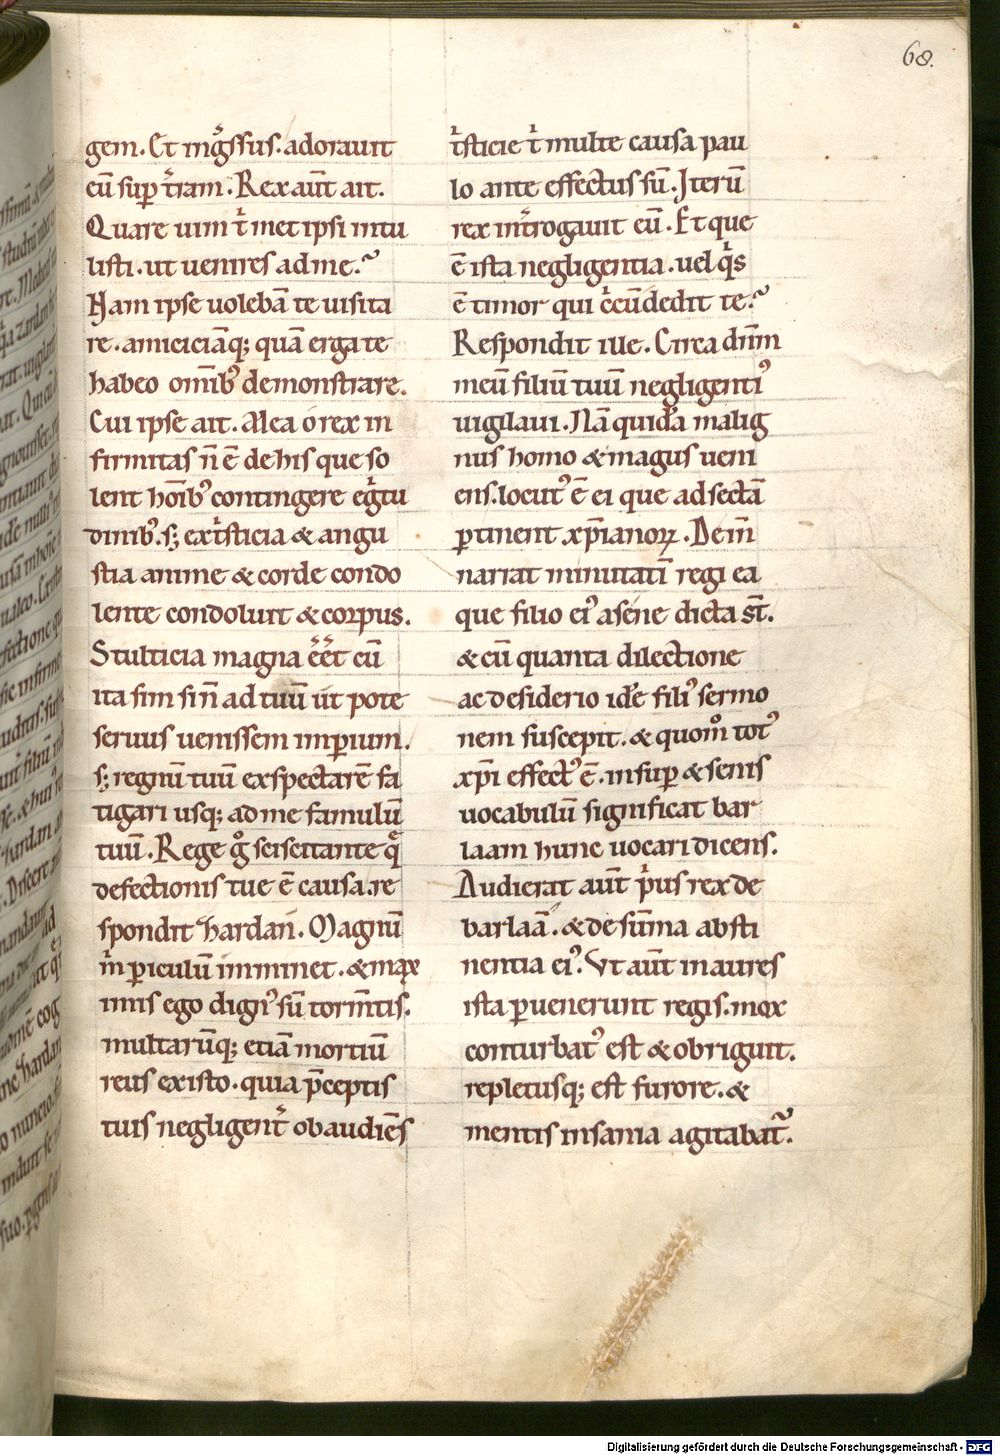 68.
gem. Et ingͥssus. adorauit
eū suꝑ tͥram. Rex aūt ait.
Quare uim tͥ met ipsi intu
listi. ut uenires ad me.
Nam ipse uolebā te uisita
re. amiciciāq; quā erga te
habeo omībꝰ demonstrare.
Cui ipse ait. Mea o rex in
firmitas n̄ ē de his que so
lent hoībꝰ contingere egͥtu
dinibꝰ. s; ex tͥsticia & angu
stia anime & corde condo
lente condoluit & corpus.
Stulticia magna eēt cū
ita sim si n̄ ad tuū ut pote
seruus uenissem imꝑium.
s; regnū tuū exspectarē fa
tigari usq; ad me famulū
tuū. Rege gͦ sciscitante qͣ
defectionis tue ē causa. re
spondit hardan. Magnū
m̄ ꝑiculū imminet. & max
imis ego dignꝰ sū torm̄tis.
multarūq; etiā mortiū
reus existo. quia p̄ceptis
tuis negligentͥ obaudiēs
tͥsticie tͥ multe causa pau
lo ante effectus sū. Iterū
rex intͥrogauit eū. Et que
ē ista negligentia. uel qͥs
ē timor qui cͥcūdedit te.
Respondit iue. Circa dn̄m
meū filiū tuū negligentiꝰ
uigilaui. Nā quidā malig
nus homo & magus ueni
ens. locutꝰ ē ei que ad sectā
ꝑtinent xp̄ianoꝝ. Dein̄
narrat minutatī regi ea
que filio eiꝰ a sene dicta st̄.
& cū quanta dilectione
ac desiderio idē filiꝰ sermo
nem suscepit. & quom̊ totꝰ
xp̄i effectꝰ ē. insuꝑ & senis
uocabulū significat bar
laam hunc uocari dicens.
Audierat aūt pͥus rex de
barlaā. & de sūma absti
nentia eiꝰ. Vt aūt in aures
ista ꝑuenerunt regis. mox
conturbatꝰ est & obriguit.
repletusq; est furore. &
mentis insania agitabat᷑.
Digitalisierung gefördert durch die Deutsche Forschungsgemeinschaft - DFG